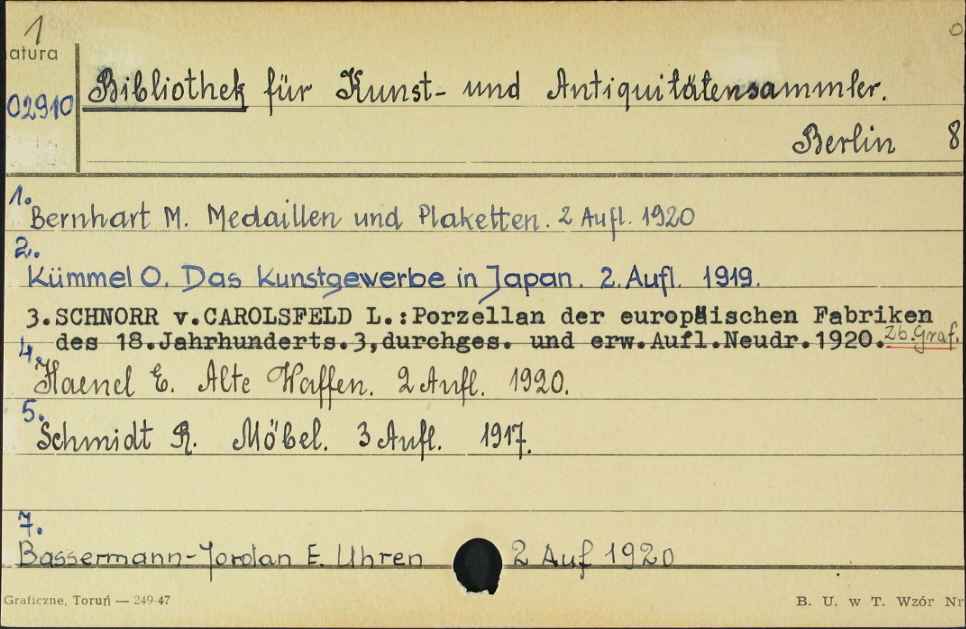 1
atura
02910
Bibliothek für Kunst- und Antiquitätensammler.
Berlin 8
1.
Bernhart M. Medaillen und Plaketten. 2 Aufl. 1920
2.
Kümmel O. Das Kunstgewerbe in Japan. 2. Aufl. 1919.
3.SCHNORR v.CAROLSFELD L.:Porzellan der europäischen Fabriken
des 18.Jahrhunderts.3,durchges. und erw.Aufl.Neudr.1920. Zb.Graf.
4.
Haenel E. Alte Waffen. 2 Aufl. 1920.
5.
Schmidt R. Möbel. 3 Aufl. 1917.
7.
Bassermann-Jordan E. Uhren 2 Auf 1920
Graficzne, Toruń — 249-47
B. U. w T. Wzór Nr